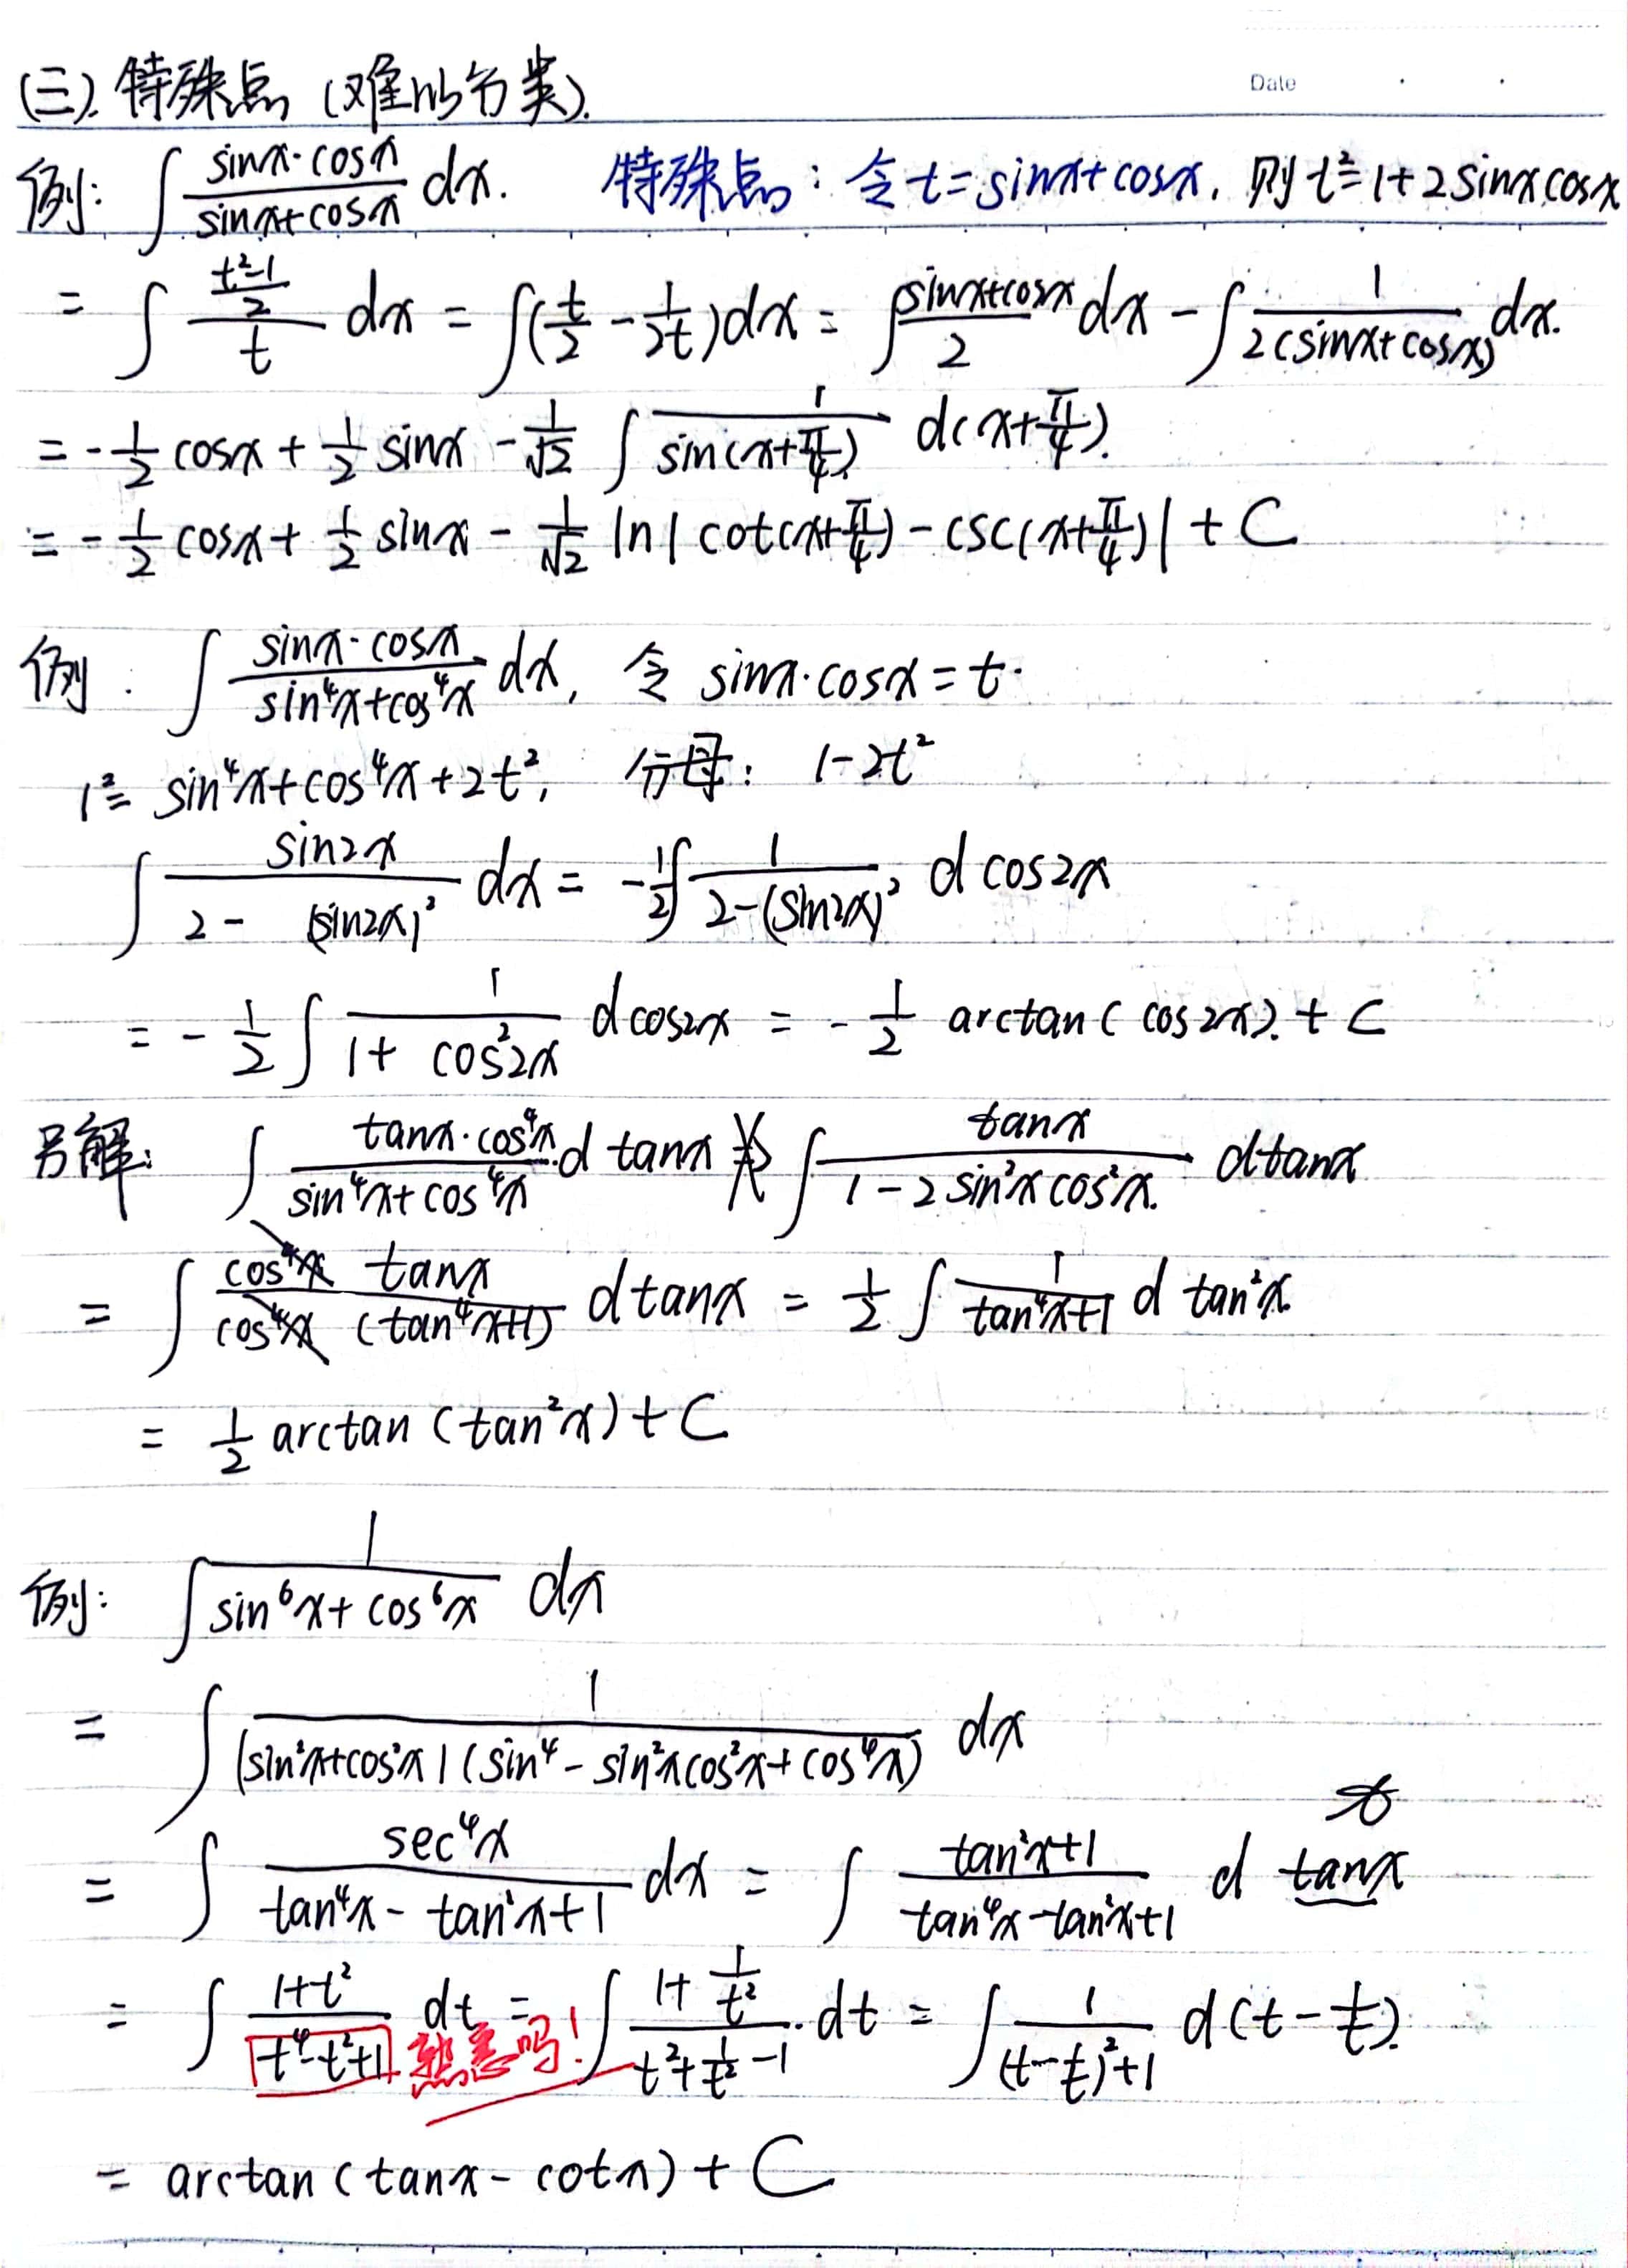 Date
(三). 特殊点 (难以分类).
例: ∫ (sinx·cosx)/(sinx+cosx) dx. 特殊点: 令 t=sinx+cosx, 则 t²=1+2sinxcosx
= ∫ ((t²-1)/2)/t dx = ∫(t/2 - 1/2t)dx = ∫ (sinx+cosx)/2 dx - ∫ 1/(2(sinx+cosx)) dx.
= -1/2 cosx + 1/2 sinx - 1/√2 ∫ 1/sin(x+π/4) d(x+π/4).
= -1/2 cosx + 1/2 sinx - 1/√2 ln|cot(x+π/4) - csc(x+π/4)| + C
例: ∫ (sinx·cosx)/(sin⁴x+cos⁴x) dx, 令 sinx·cosx=t.
1²= sin⁴x+cos⁴x+2t², 分母: 1-2t²
∫ sin2x/(2-(sin2x)²) dx = -1/2 ∫ 1/(2-(sin2x)²) d cos2x
= -1/2 ∫ 1/(1+cos²2x) d cos2x = -1/2 arctan(cos2x). + C
另解: ∫ (tanx·cos⁴x)/(sin⁴x+cos⁴x) d tanx ∫ tanx/(1-2sin²xcos²x.) dtanx
= ∫ (cos⁴x tanx)/(cos⁴x (tan⁴x+1)) dtanx = 1/2 ∫ 1/(tan⁴x+1) d tan²x.
= 1/2 arctan(tan²x)+C
例: ∫ 1/(sin⁶x+cos⁶x) dx
= ∫ 1/((sin²x+cos²x)(sin⁴-sin²xcos²x+cos⁴x)) dx
= ∫ sec⁴x/(tan⁴x-tan²x+1) dx = ∫ (tan²x+1)/(tan⁴x-tan²x+1) d tanx
= ∫ (1+t²)/(t⁴-t²+1) dt = ∫ (1+1/t²)/(t²+1/t²-1)·dt = ∫ 1/((t-1/t)²+1) d(t-1/t).
熟悉吗!
= arctan(tanx-cotx)+C